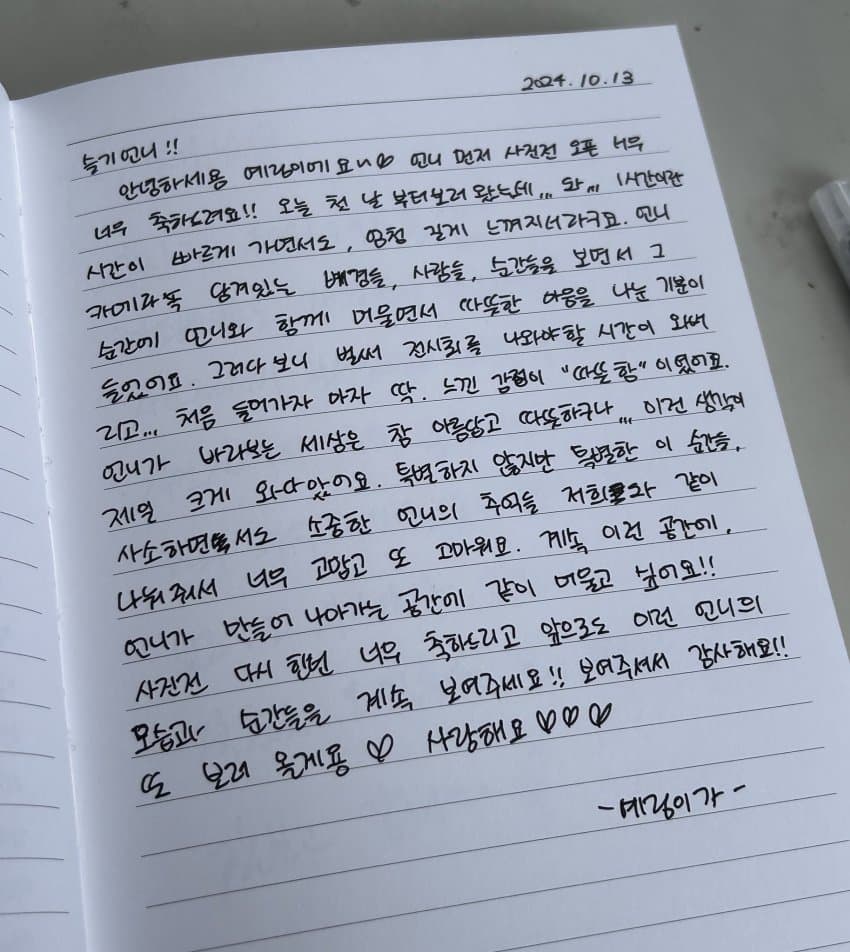 2024.10.13
슬기언니!!
안녕하세용 예림이에요ㅎㅎ♡ 언니 먼저 사진전 오픈 너무
너무 축하드려요!! 오늘 첫 날 부터보러 왔는데,,, 와,,, 1시간이란
시간이 빠르게 가면서도, 엄청 길게 느껴지더라구요. 언니
카메라속 담겨있는 배경들, 사람들, 순간들을 보면서 그
순간에 언니와 함께 머물면서 따뜻한 마음을 나눈 기분이
들었어요. 그러다 보니 벌써 전시회를 나와야할 시간이 와버
리고... 처음 들어가자 마자 딱. 느낀 감정이 "따뜻함"이였어요.
언니가 바라보는 세상은 참 아름답고 따뜻하구나,,, 이런 생각이
제일 크게 와다았어요. 특별하지 않지만 특별한 이 순간들,
사소하면서도 소중한 언니의 추억들 저희와 같이
나눠줘서 너무 고맙고 또 고마워요. 계속 이런 공간에,
언니가 만들어 나아가는 공간에 같이 머물고 싶어요!!
사진전 다시 한번 너무 축하드리고 앞으로도 이런 언니의
모습과 순간들을 계속 보여주세요!! 보여주셔서 감사해요!!
또 보러 올게용 ♡ 사랑해요 ♡♡♡
-예림이가-